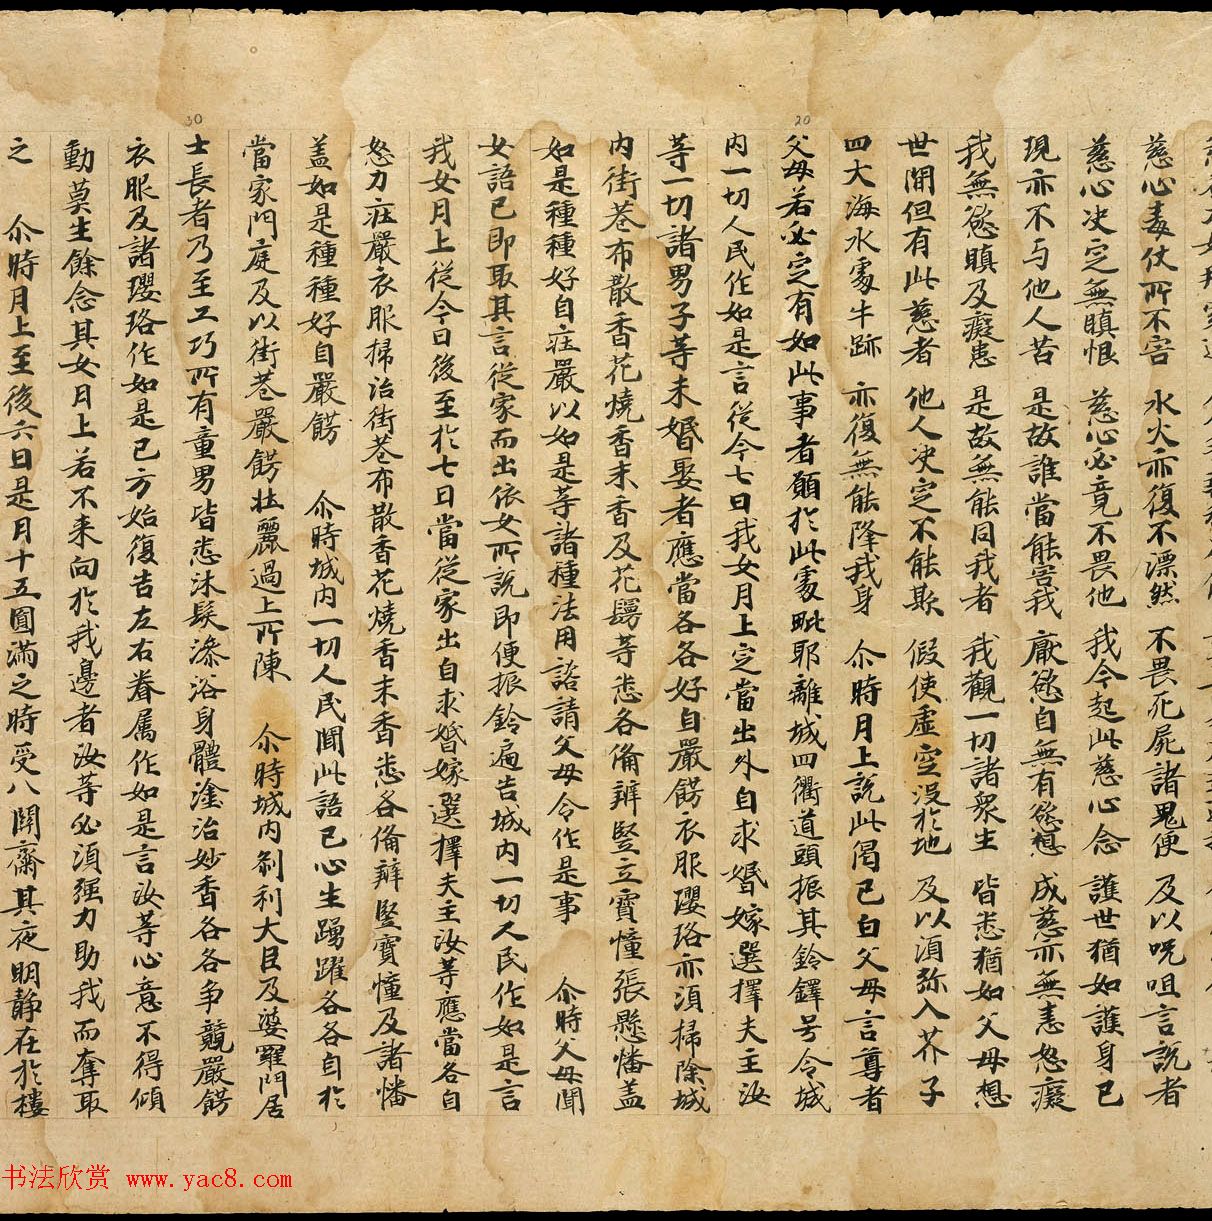 慈心毒仗所不害 水火亦復不漂然 不畏死屍諸鬼便 及以呪咀言說者
慈心决定無瞋恨 慈心必竟不畏他 我今起此慈心念 護世猶如護身己
現亦不与他人苦 是故誰當能害我 厭慾自無有慾想 成慈亦無恚怒癡
我無慾瞋及癡恚 是故無能同我者 我觀一切諸衆生 皆悉猶如父母想
世間但有此慈者 他人决定不能欺 假使虛空沒於地 及以湏弥入芥子
四大海水處牛跡 亦復無能降我身 尒時月上說此偈已白父母言尊者
父母若必定有如此事者願於此處毗耶離城四衢道頭振其鈴鐸号令城
内一切人民作如是言從今七日我女月上定當出外自求婚嫁選擇夫主汝
等一切諸男子等未婚娶者應當各各好自嚴餝衣服瓔珞亦湏掃除城
内街巷布散香花燒香末香及花鬘等悉各俻辦竪立寶幢張懸幡蓋
如是種種好自莊嚴以如是等諸種法用諮請父母令作是事 尒時父母聞
女語已即取其言從家而出依女所說即便振鈴遍告城内一切人民作如是言
我女月上從今日後至於七日當從家出自求婚嫁選擇夫主汝等應當各自
怒力莊嚴衣服掃治街巷布散香花燒香末香悉各俻辦竪寶幢及諸幡
蓋如是種種好自嚴餝 尒時城内一切人民聞此語已心生踊躍各各自於
當家門庭及以街巷嚴餝壮麗過上所陳 尒時城内刹利大臣及婆羅門居
士長者乃至工巧所有童男皆悉沐髮澡浴身體塗治妙香各各争競嚴餝
衣服及諸瓔珞作如是已方始復告左右眷属作如是言汝等心意不得傾
動莫生餘念其女月上若不来向於我邊者汝等必湏强力助我而奪取
之 尒時月上至後六日是月十五圓滿之時受八關齋其夜明静在於樓
20
30
书法欣赏 www.yac8.com